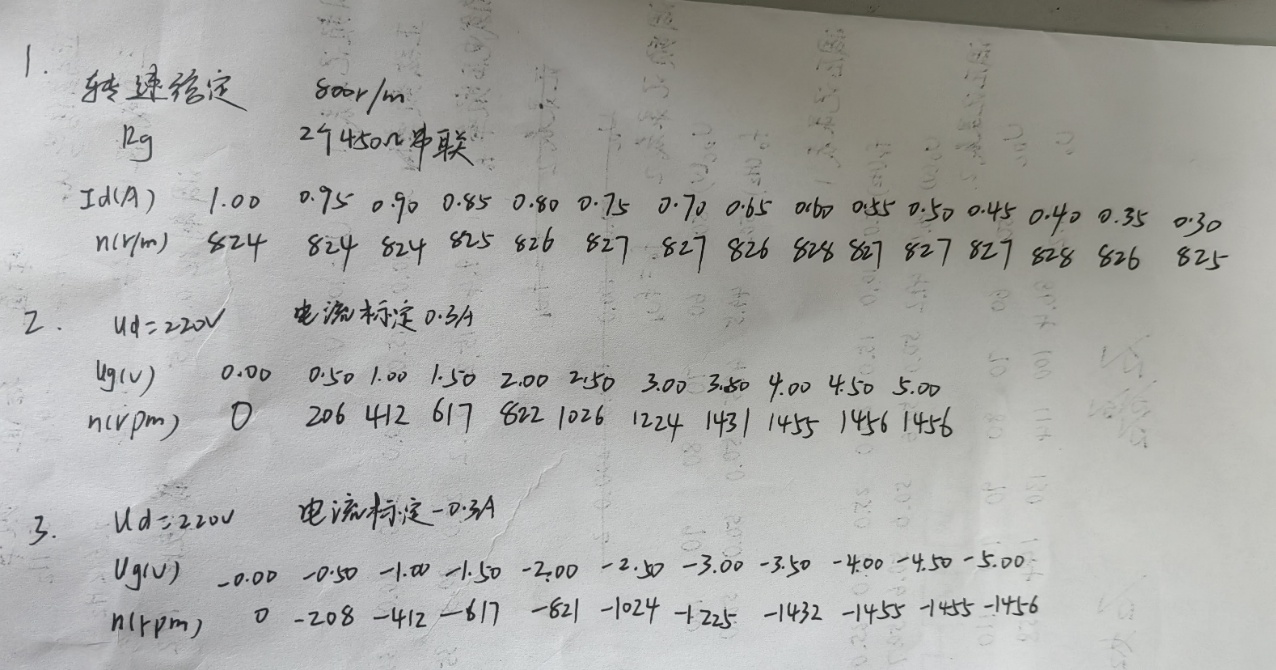 1.
转速给定 800r/m
Rg 2个450Ω串联
Id(A) 1.00 0.95 0.90 0.85 0.80 0.75 0.70 0.65 0.60 0.55 0.50 0.45 0.40 0.35 0.30
n(r/m) 824 824 824 825 826 827 827 826 828 827 827 827 828 826 825
2. Ud=220V 电流标定0.3A
Ug(v) 0.00 0.50 1.00 1.50 2.00 2.50 3.00 3.50 4.00 4.50 5.00
n(rpm) 0 206 412 617 822 1026 1224 1431 1455 1456 1456
3. Ud=220V 电流标定-0.3A
Ug(v) -0.00 -0.50 -1.00 -1.50 -2.00 -2.50 -3.00 -3.50 -4.00 -4.50 -5.00
n(rpm) 0 -208 -412 -617 -821 -1024 -1225 -1432 -1455 -1455 -1456